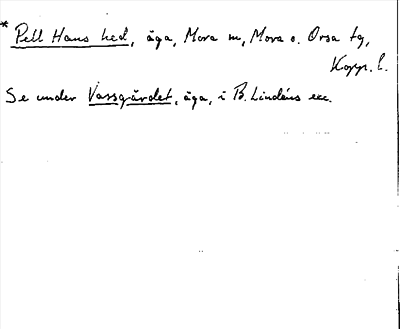 * Pell Hans hed, äga, Mora m, Mora o. Orsa tg,
Kopp. l.
Se under Vassgärdet, äga, i B. Lindéns exc.